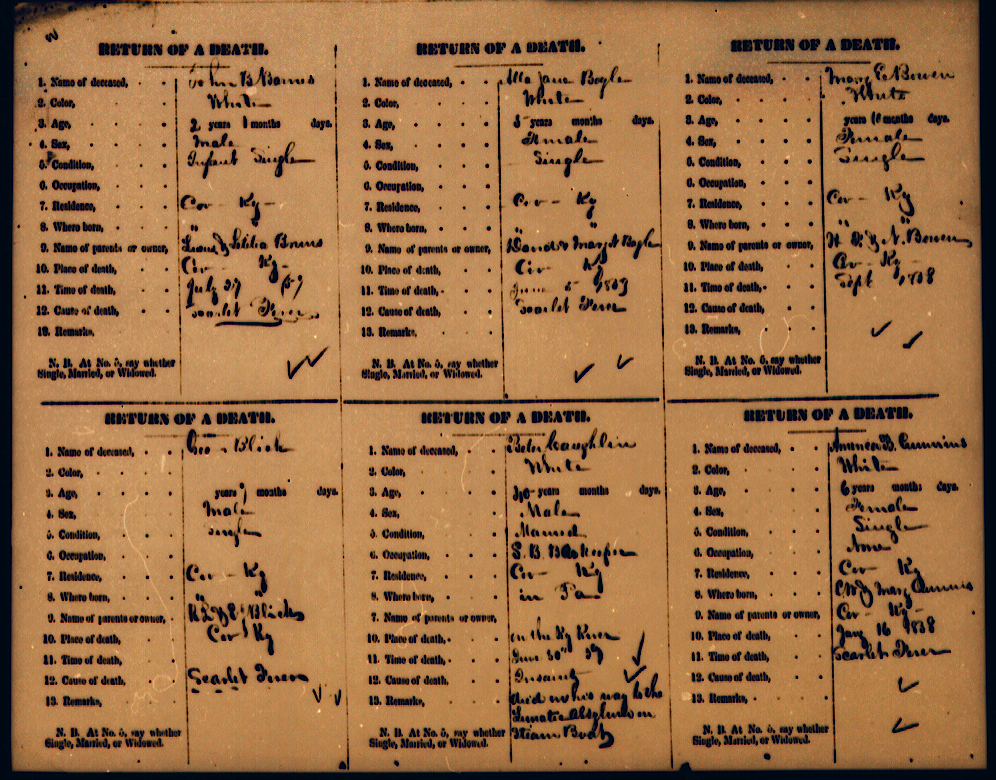 RETURN OF A DEATH.
1. Name of deceased, John B
2. Color, White
3. Age, 2 years 1 months days.
4. Sex, Male
5. Condition, Infant Single
6. Occupation,
7. Residence, Cov - Ky -
8. Where born, "
9. Name of parents or owner,
10. Place of death, Cov Ky -
11. Time of death, July 27
12. Cause of death, Scarlet Fever
13. Remarks,
N. B. At No. 5, say whether
Single, Married, or Widowed.
RETURN OF A DEATH.
1. Name of deceased, Jane Boyle
2. Color, White
3. Age, years months days.
4. Sex, Female
5. Condition, Single
6. Occupation,
7. Residence, Cov - Ky
8. Where born, " "
9. Name of parents or owner, David & Mary A Boyle
10. Place of death, Cov Ky
11. Time of death, June
12. Cause of death, Scarlet Fever
13. Remarks,
N. B. At No. 5, say whether
Single, Married, or Widowed.
RETURN OF A DEATH.
1. Name of deceased, Mary E. Bowen
2. Color, White
3. Age, years 10 months days.
4. Sex, Female
5. Condition, Single
6. Occupation,
7. Residence, Cov - Ky
8. Where born, " "
9. Name of parents or owner, N. Bowen
10. Place of death, Cov - Ky -
11. Time of death, Sept 1858
12. Cause of death,
13. Remarks,
N. B. At No. 5, say whether
Single, Married, or Widowed.
RETURN OF A DEATH.
1. Name of deceased, Geo - Blick
2. Color,
3. Age, years 9 months days.
4. Sex, Male
5. Condition, Single
6. Occupation,
7. Residence, Cov - Ky
8. Where born, " "
9. Name of parents or owner,
10. Place of death, Cov Ky
11. Time of death,
12. Cause of death, Scarlet Fever
13. Remarks,
N. B. At No. 5, say whether
Single, Married, or Widowed.
RETURN OF A DEATH.
1. Name of deceased, Peter Laughlin
2. Color, White
3. Age, years months days.
4. Sex, Male
5. Condition, Married
6. Occupation, S. B. Bar Keeper
7. Residence, Cov - Ky
8. Where born, in Pa
7. Name of parents or owner,
10. Place of death, on the Ky River
11. Time of death, June 30" 59
12. Cause of death, Insanity
13. Remarks, died on his way to the
Lunatic Absylum on
Steam Boat
N. B. At No. 5, say whether
Single, Married, or Widowed.
RETURN OF A DEATH.
1. Name of deceased, B. Cummins
2. Color, White
3. Age, 6 years months days.
4. Sex, Female
5. Condition, Single
6. Occupation, None
7. Residence, Cov - Ky
8. Where born, Mary Cummins
9. Name of parents or owner, Cov - Ky -
10. Place of death, Jany 16 1858
11. Time of death, Scarlet Fever
12. Cause of death,
13. Remarks,
N. B. At No. 5, say whether
Single, Married, or Widowed.